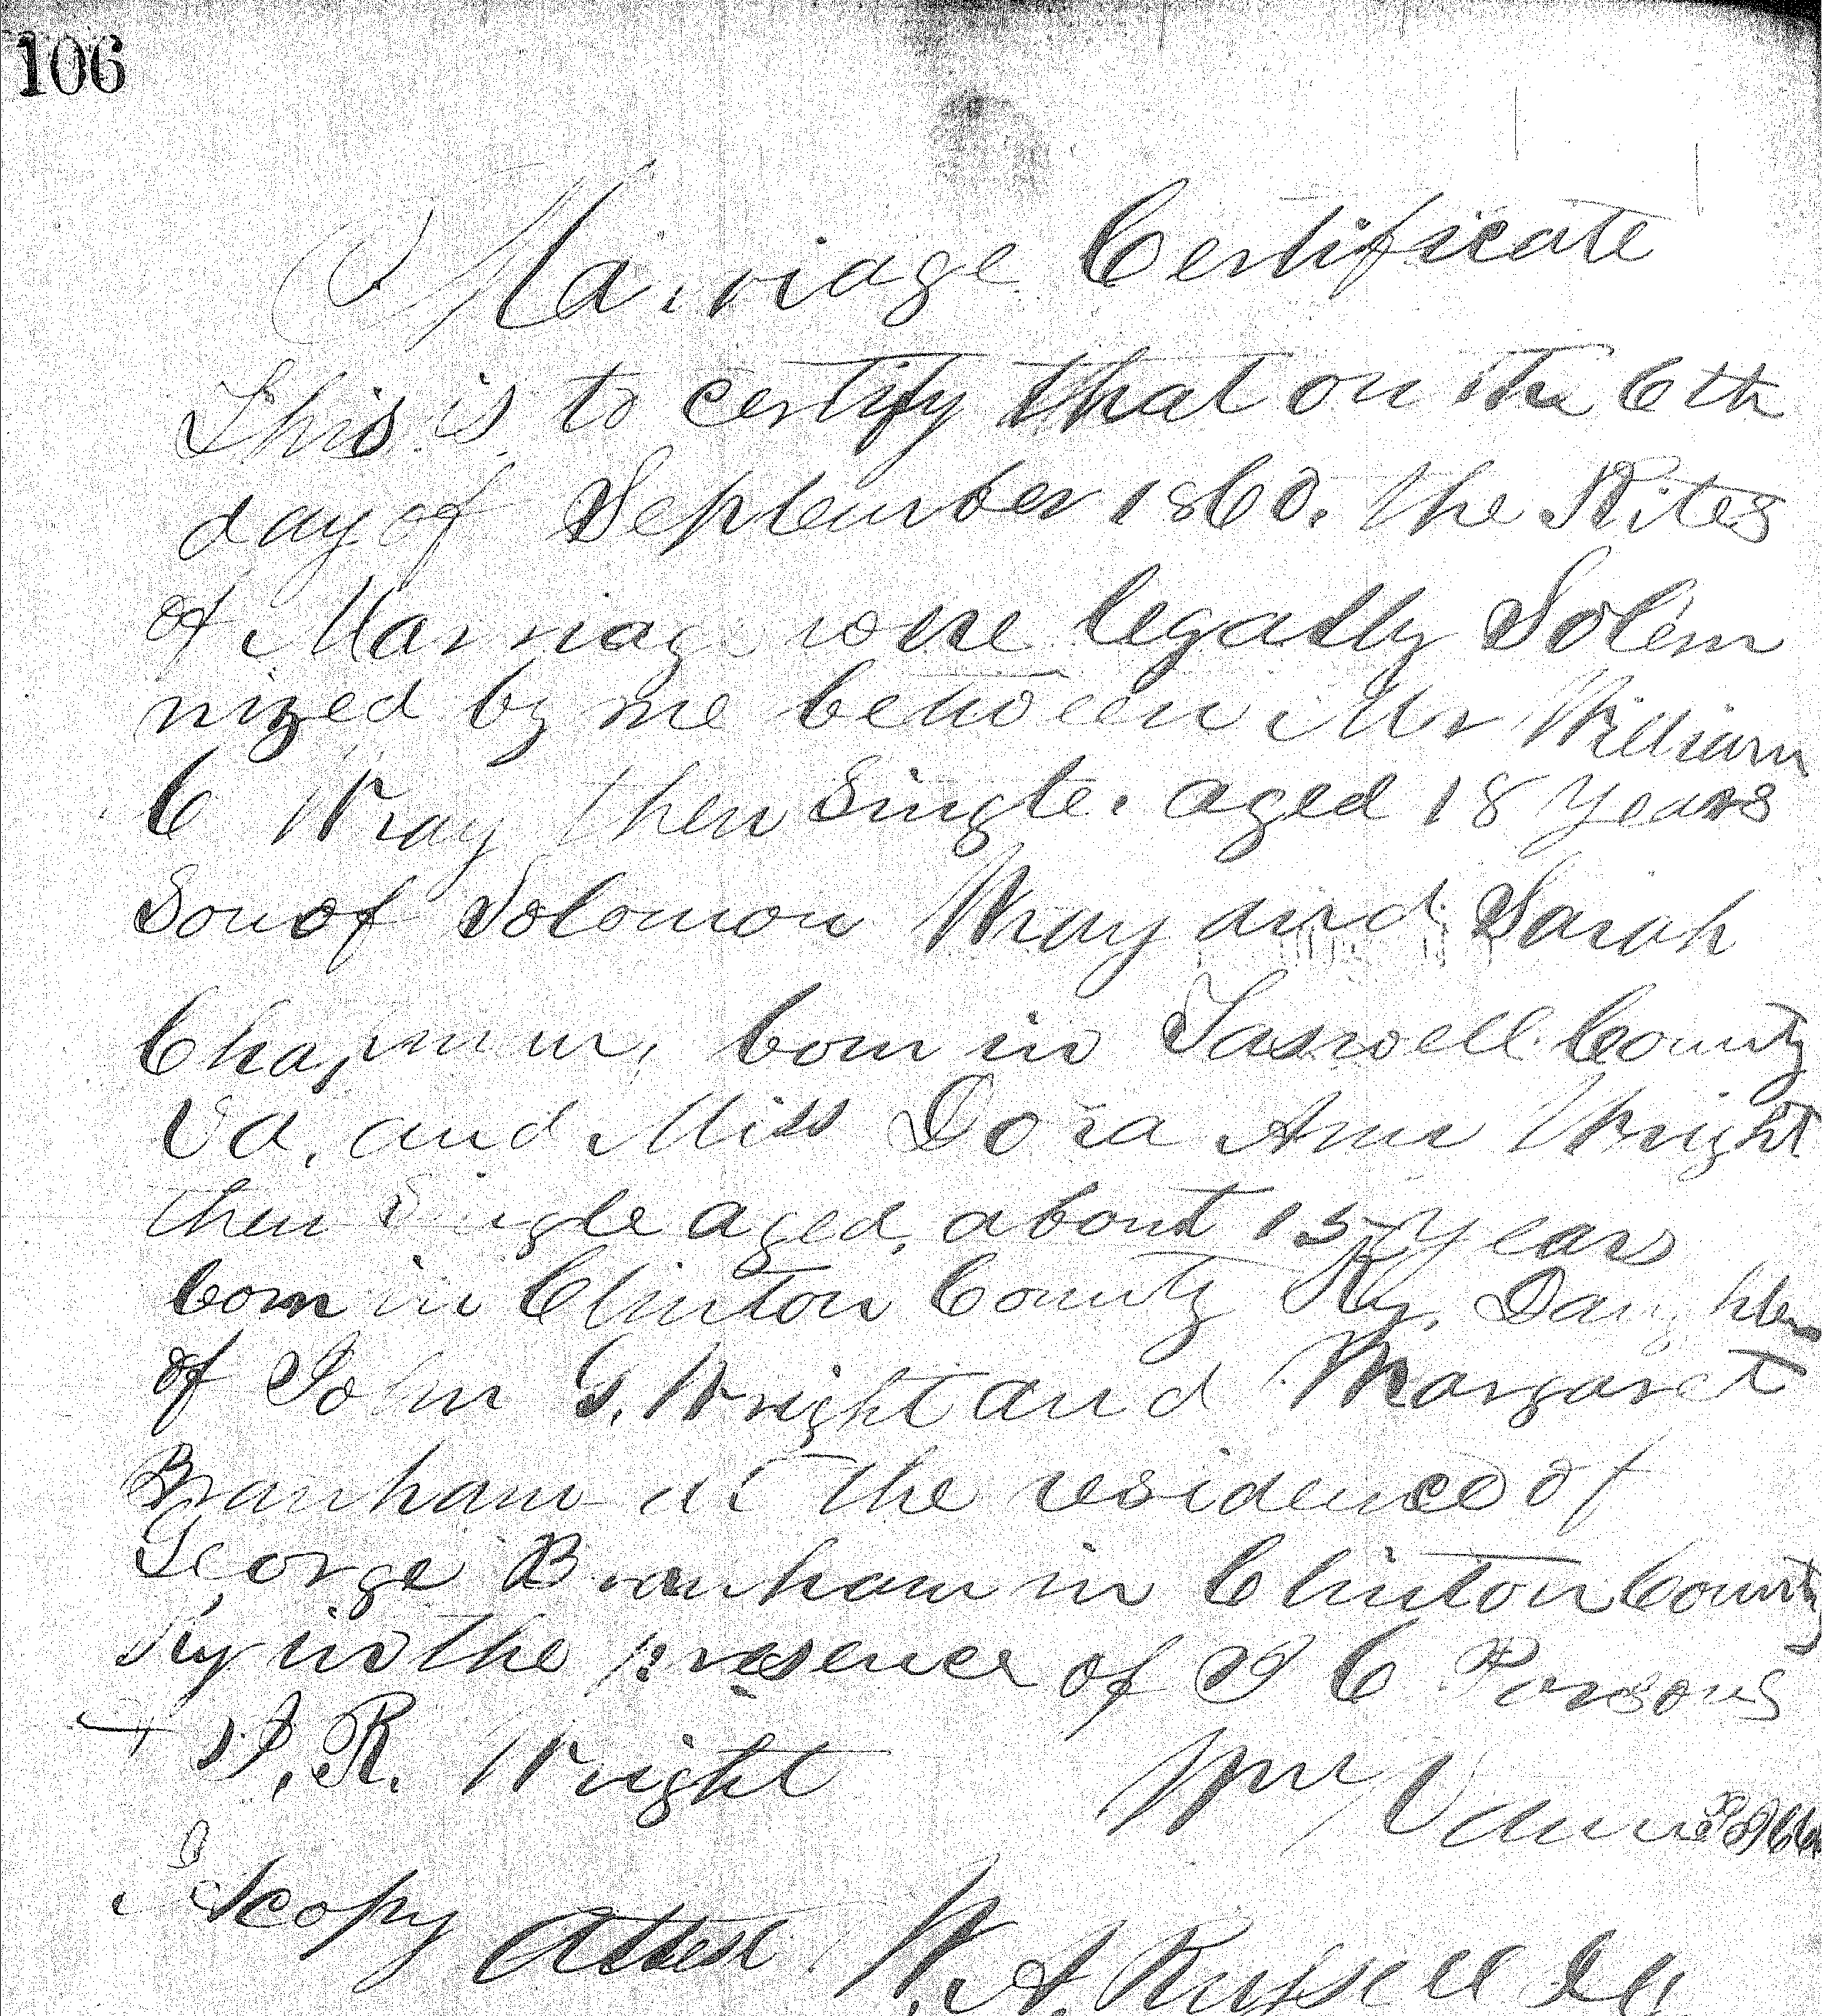 106
Marriage Certificate
This is to certify that on the 6th
day of September 1860. the Rites
of Marriage were legally Solem
nized by me between Mr William
C Wray then Single. aged 18 years
Son of Solomon Wray and Sarah
Chapman, born in Taswell County
Va, and Miss Dora Ann Wright
then Single aged, about 15 years
born in Clinton County Ky, Daughter
of John G. Wright and Margaret
Branham at the residence of
George Branham in Clinton County
Ky in the presence of J C Parsons
J. R. Wright
Wm Vann
A copy Attest W. A. Russell